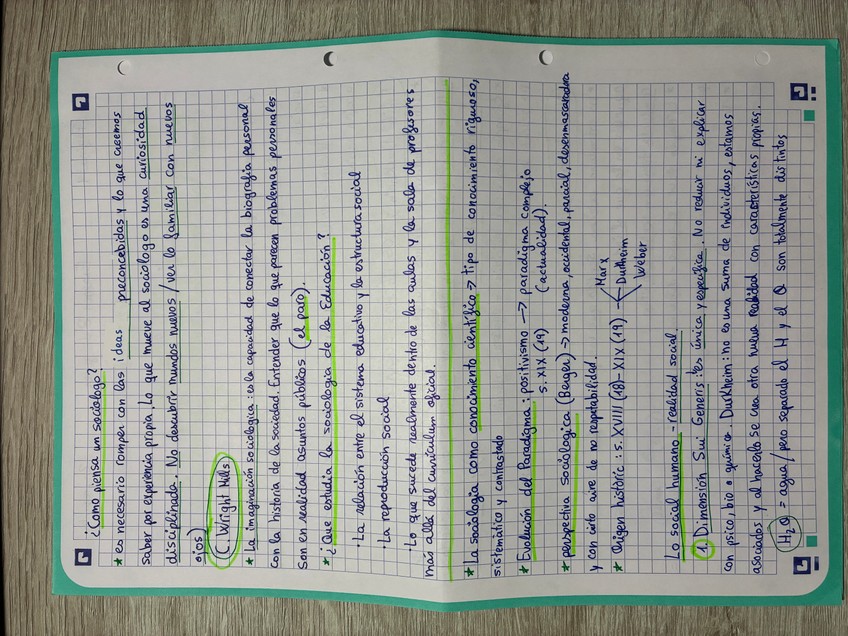 ¿Como piensa un sociólogo?
* es necesario romper con las ideas preconcebidas y lo que creemos
saber por experiencia propia. Lo que mueve al sociólogo es una curiosidad
disciplinada. No descubrir mundos nuevos / ver lo familiar con nuevos
ojos)
(C. Wright Mills)
* La imaginación sociológica: es la capacidad de conectar la biografía personal
con la historia de la sociedad. Entender que lo que parecen problemas personales
son en realidad asuntos públicos (el paro).
* ¿Que estudia la sociología de la Educación?
· La relación entre el sistema educativo y la estructura social
· La reproducción social
· Lo que sucede realmente dentro de las aulas y la sala de profesores
más alla del curriculum oficial.
* La sociología como conocimiento científico → tipo de conocimiento riguroso,
sistemático y contrastado
* Evolución del Paradigma: positivismo → paradigma complejo
s. XIX (19) (actualidad).
* perspectiva sociologica (Berger) → moderna, occidental, parcial, desenmascaradora
y con cierto aire de no respetabilidad.
* Origen històric: s. XVIII (18) - XIX (19) - Marx
Durkheim
Weber
Lo social humano - realidad social
1. Dimensión Sui Generis: es única y específica. No reducir ni explicar
con psico, bio o química. Durkheim: no es una suma de individuos, estamos
asociados y al hacerlo se crea otra nueva realidad con características propias.
H₂O = agua / pero separado el H y el O son totalmente distintos